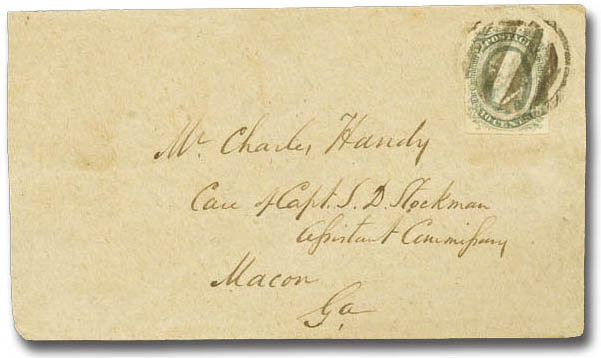 POSTAGE
TEN CENTS
Mr Charles Handy
Care of Capt. S. D. Stockman
Assistant Commissary
Macon
Ga